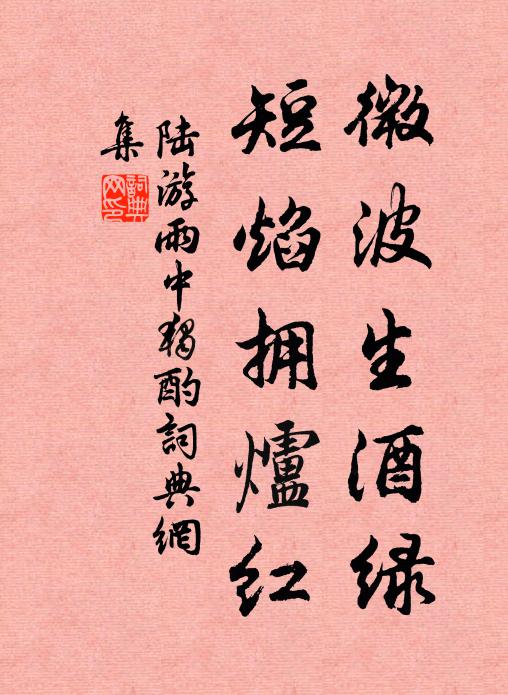 微波生酒绿
短焰拥爐红
陆游雨中独酌詞典網
集
詞典
网印